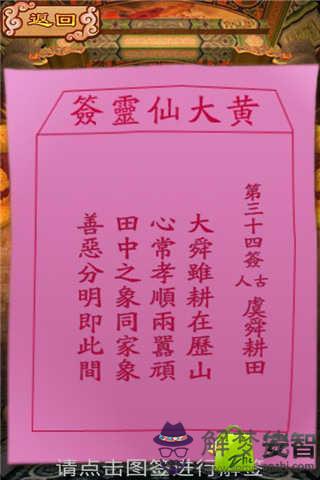 返回
黄大仙靈簽
第三十四簽 古人 虞舜耕田
大舜雖耕在歷山
心常孝順兩囂頑
田中之象同家象
善惡分明即此間
请点击图签进行解签
解梦
安智